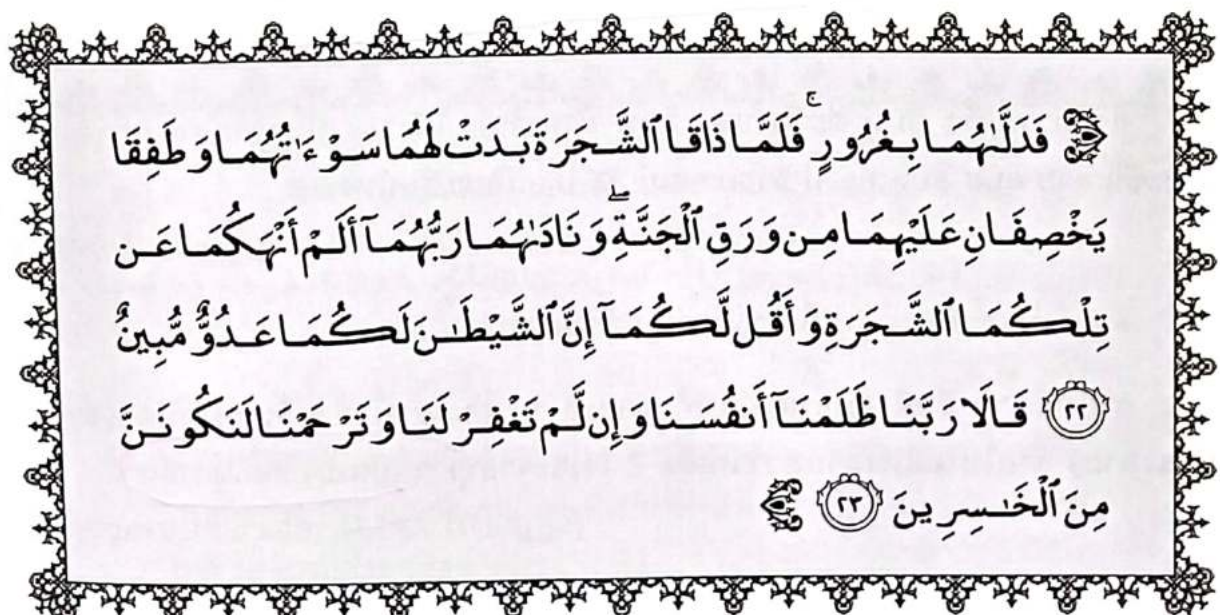 فَدَلَّىٰهُمَا بِغُرُورٍ ۚ فَلَمَّا ذَاقَا ٱلشَّجَرَةَ بَدَتْ لَهُمَا سَوْءَٰتُهُمَا وَطَفِقَا
يَخْصِفَانِ عَلَيْهِمَا مِن وَرَقِ ٱلْجَنَّةِ ۖ وَنَادَىٰهُمَا رَبُّهُمَآ أَلَمْ أَنْهَكُمَا عَن
تِلْكُمَا ٱلشَّجَرَةِ وَأَقُل لَّكُمَآ إِنَّ ٱلشَّيْطَٰنَ لَكُمَا عَدُوٌّ مُّبِينٌ
٢٢ قَالَا رَبَّنَا ظَلَمْنَآ أَنفُسَنَا وَإِن لَّمْ تَغْفِرْ لَنَا وَتَرْحَمْنَا لَنَكُونَنَّ
مِنَ ٱلْخَٰسِرِينَ ٢٣